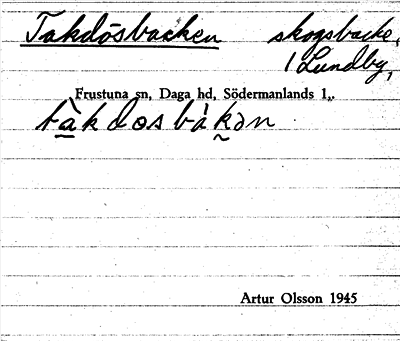 Takdösbacken skogsbacke,
1 Lundby,
Frustuna sn, Daga hd, Södermanlands l.,
tàkdøsbàkən
Artur Olsson 1945